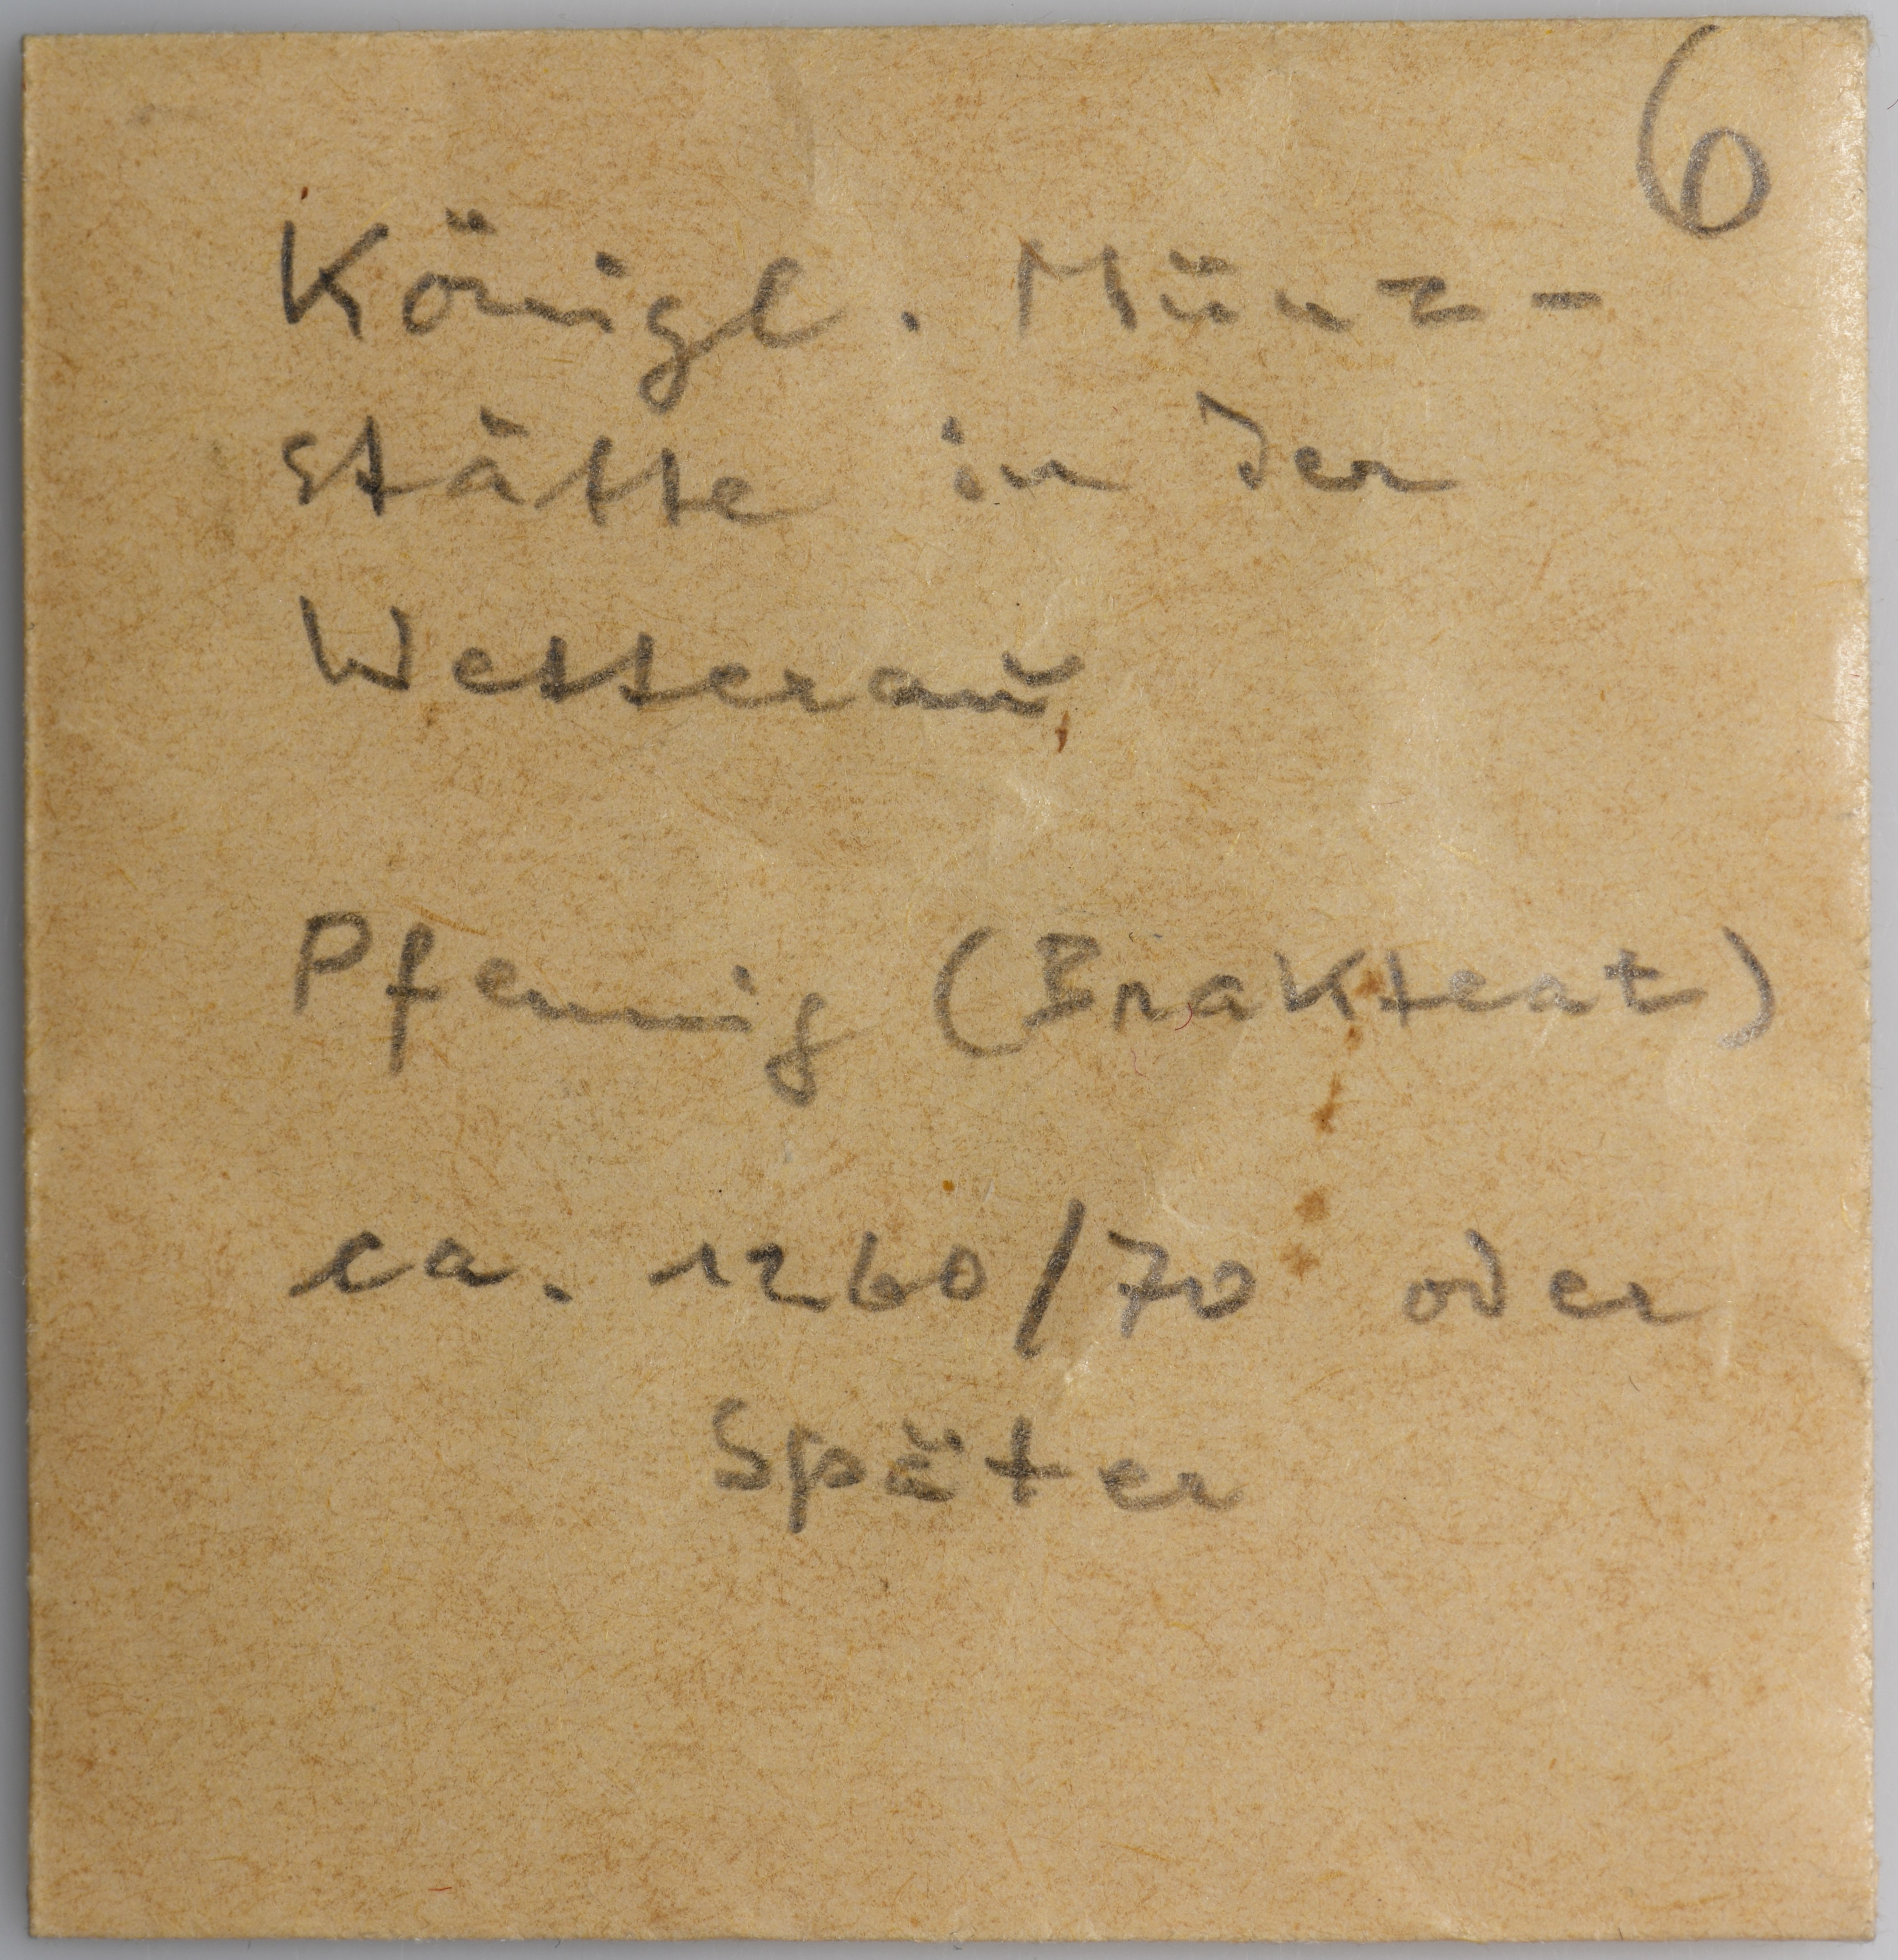 6
Königl. Münz-
stätte in der
Wetterau
Pfennig (Brakteat)
ca. 1260/70 oder
später